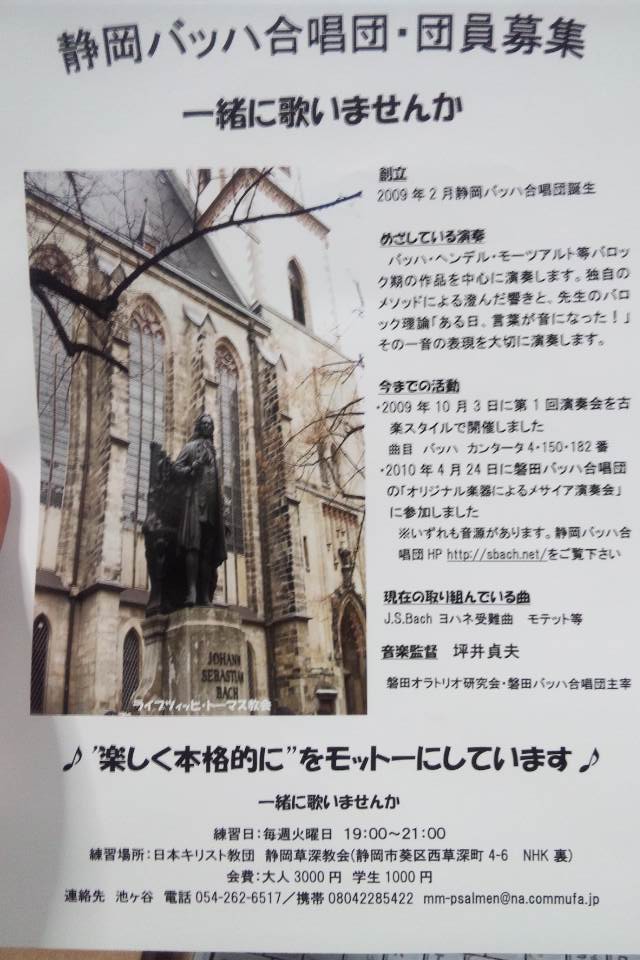 静岡バッハ合唱団・団員募集
一緒に歌いませんか
創立
2009年2月静岡バッハ合唱団誕生
めざしている演奏
バッハ・ヘンデル・モーツアルト等バロッ
ク期の作品を中心に演奏します。独自の
メソッドによる澄んだ響きと、先生のバロ
ック理論「ある日、言葉が音になった！」
その一音の表現を大切に演奏します。
今までの活動
・2009年10月3日に第1回演奏会を古
楽スタイルで開催しました
曲目 バッハ カンタータ4・150・182番
・2010年4月24日に磐田バッハ合唱団
の「オリジナル楽器によるメサイア演奏会」
に参加しました
※いずれも音源があります。静岡バッハ合
唱団HP http://sbach.net/をご覧下さい
現在の取り組んでいる曲
J.S.Bach ヨハネ受難曲 モテット等
音楽監督 坪井貞夫
磐田オラトリオ研究会・磐田バッハ合唱団主宰
JOHANN
SEBASTIAN
BACH
ライプツィッヒ・トーマス教会
♪"楽しく本格的に"をモットーにしています♪
一緒に歌いませんか
練習日：毎週火曜日 19:00～21:00
練習場所：日本キリスト教団 静岡草深教会（静岡市葵区西草深町4-6 NHK裏）
会費：大人3000円 学生1000円
連絡先 池ヶ谷 電話054-262-6517／携帯08042285422 mm-psalmen@na.commufa.jp